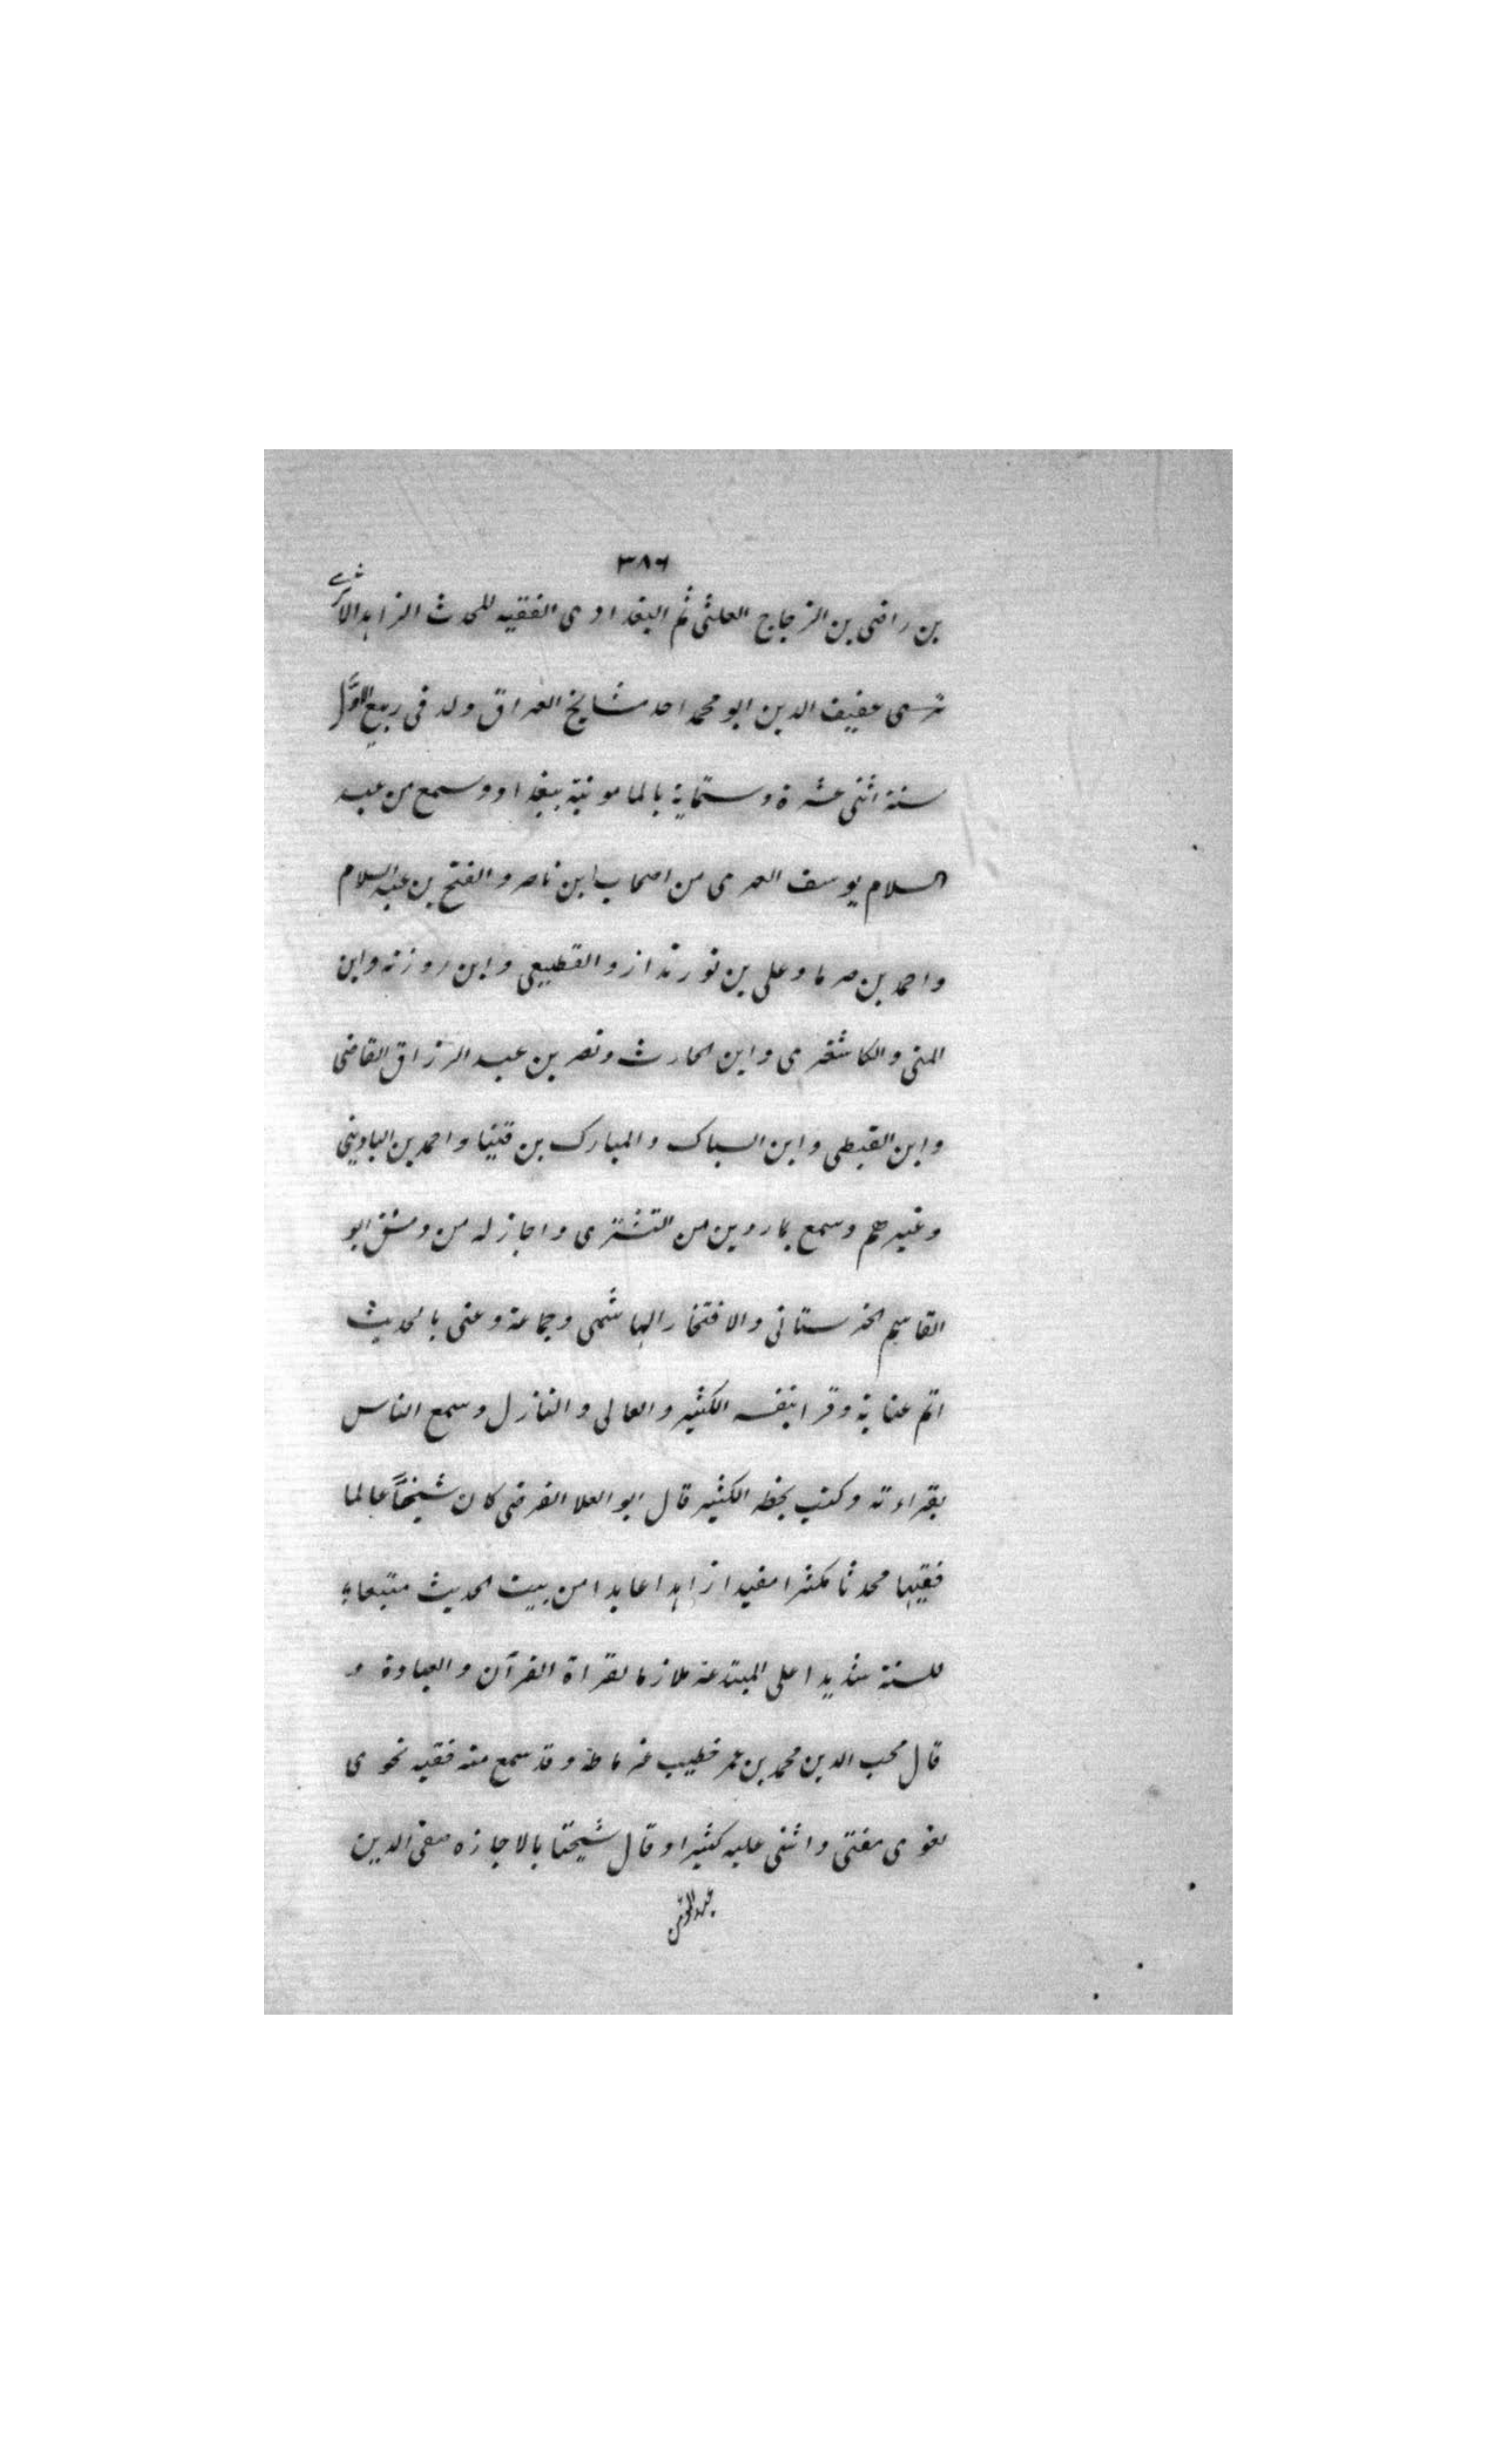 ٣٨٦
بن راضى بن الزجاج العلثى ثم البغدادى الفقيه المحدث الزاهد الاثرى
عفيف الدين ابو محمد احد مشايخ العراق ولد فى ربيع الاول
سنة اثنى عشرة وستماية بالمامونية ببغداد وسمع من عبد
السلام يوسف العمرى من اصحاب ابن ناصر والفتح بن عبد السلام
واحمد بن صرما وعلى بن نورنداز والقطيعى وابن روزنه وابن
المنى والكاشغرى وابن الحارث ونصر بن عبد الرزاق القاضى
وابن القبطى وابن السباك والمبارك بن قتيبا واحمد بن البادبينى
وغيرهم وسمع بماردين من التشترى واجاز له من دمشق ابو
القاسم الخرستانى والافتخار الهاشمى وجماعة وعنى بالحديث
اتم عناية وقرا بنفسه الكثير والعالى والنازل وسمع الناس
بقراءته وكتب بخطه الكثير قال ابو العلا الفرضى كان شيخاً عالما
فقيها محدثا مكثرا مفيدا زاهدا عابدا من بيت الحديث متبعا
للسنة شديدا على المبتدعة ملازما لقراة القرآن والعبادة و
قال محب الدين محمد بن عمر خطيب غرناطة وقد سمع منه فقيه نحوى
لغوى مفتى واثنى عليه كثيرا وقال شيخنا بالاجازه صفى الدين
عبد المؤمن